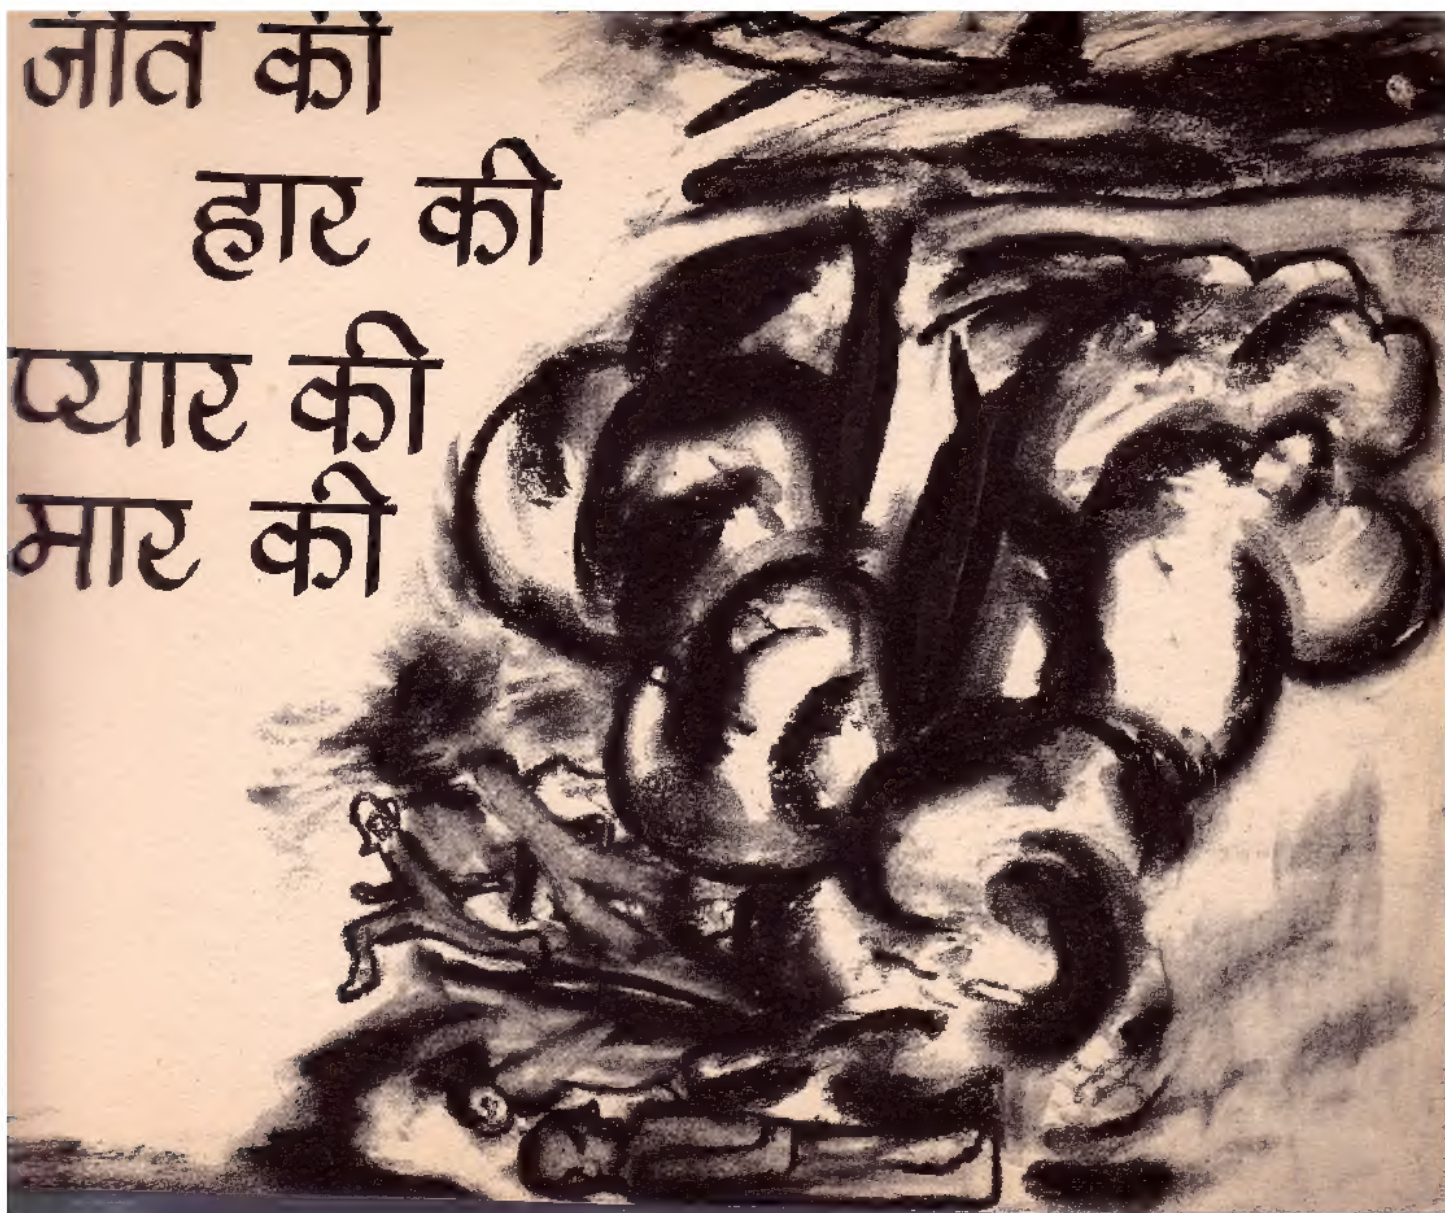 जीत की
हार की
प्यार की
मार की